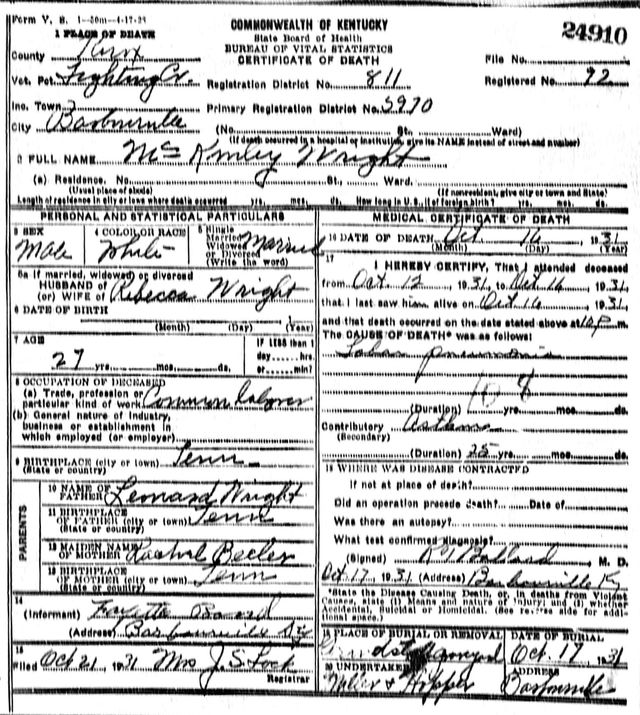 Form V. S. 1—50m—4-17-29
COMMONWEALTH OF KENTUCKY
State Board of Health
BUREAU OF VITAL STATISTICS
CERTIFICATE OF DEATH
24910
1 PLACE OF DEATH
County Knox
File No.
Vot. Pct. Fighting Cr. Registration District No. 811 Registered No. 92
Inc. Town Primary Registration District No. 5970
City Barbourville (No. St. Ward)
(If death occurred in a hospital or institution, give its NAME instead of street and number)
2 FULL NAME McKinley Wright
(a) Residence. No. St., Ward.
(Usual place of abode) (If nonresident, give city or town and State)
Length of residence in city or town where death occurred yrs. mos. ds. How long in U. S., if of foreign birth? yrs. mos. ds.
PERSONAL AND STATISTICAL PARTICULARS
3 SEX Male
4 COLOR OR RACE White
5 Single Married Widowed or Divorced (Write the word) Married
5a If married, widowed or divorced
HUSBAND of
(or) WIFE of Rebecca Wright
6 DATE OF BIRTH
(Month) (Day) (Year)
7 AGE
27 yrs. mos. ds.
IF LESS than 1
day hrs.
or min?
8 OCCUPATION OF DECEASED
(a) Trade, profession or
particular kind of work Common Laborer
(b) General nature of industry,
business or establishment in
which employed (or employer)
9 BIRTHPLACE (city or town) Tenn
(State or country)
PARENTS
10 NAME OF
FATHER Leonard Wright
11 BIRTHPLACE
OF FATHER (city or town) Tenn
(State or country)
12 MAIDEN NAME
OF MOTHER Rachel Beeler
13 BIRTHPLACE
OF MOTHER (city or town) Tenn
(State or country)
14
(Informant)
(Address) Barbourville Ky
15
Filed Oct 21, 1931 Mrs J. S. Lock
Registrar
MEDICAL CERTIFICATE OF DEATH
16 DATE OF DEATH Oct. 16 1931
(Month) (Day) (Year)
17
I HEREBY CERTIFY, That I attended deceased
from Oct 12 1931 to Oct 16 1931,
that I last saw him alive on Oct 16 1931,
and that death occurred on the date stated above at 10 P m.
The CAUSE OF DEATH* was as follows:
Lobar pneumonia
108
(Duration) yrs. mos. ds.
Contributory Asthma
(Secondary)
(Duration) 25 yrs. mos. ds.
18 WHERE WAS DISEASE CONTRACTED
If not at place of death?
Did an operation precede death? Date of
Was there an autopsy?
What test confirmed diagnosis?
(Signed) Ballard, M. D.
Oct 17, 1931 (Address) Barbourville Ky
*State the Disease Causing Death, or, in deaths from Violent
Causes, state (1) Means and nature of injury; and (2) whether
Accidental, Suicidal or Homicidal. (See reverse side for additional space.)
19 PLACE OF BURIAL OR REMOVAL DATE OF BURIAL
Oct. 17 1931
20 UNDERTAKER ADDRESS
Hopper Barbourville